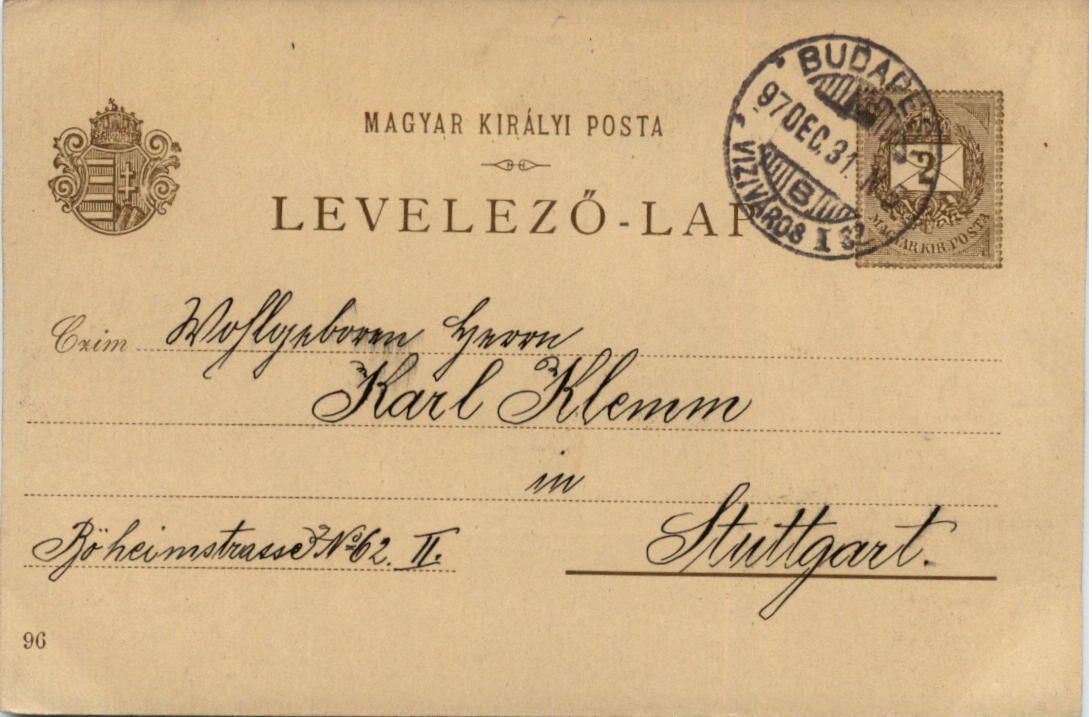 MAGYAR KIRÁLYI POSTA
LEVELEZŐ-LAP
BUDAPEST
97 DEC. 31.
B
VIZIVÁROS I
2
MAGYAR KIR. POSTA
Czim
Wohlgeboren Herrn
Karl Klemm
in
Stuttgart.
Böheimstrasse No 62. II.
96